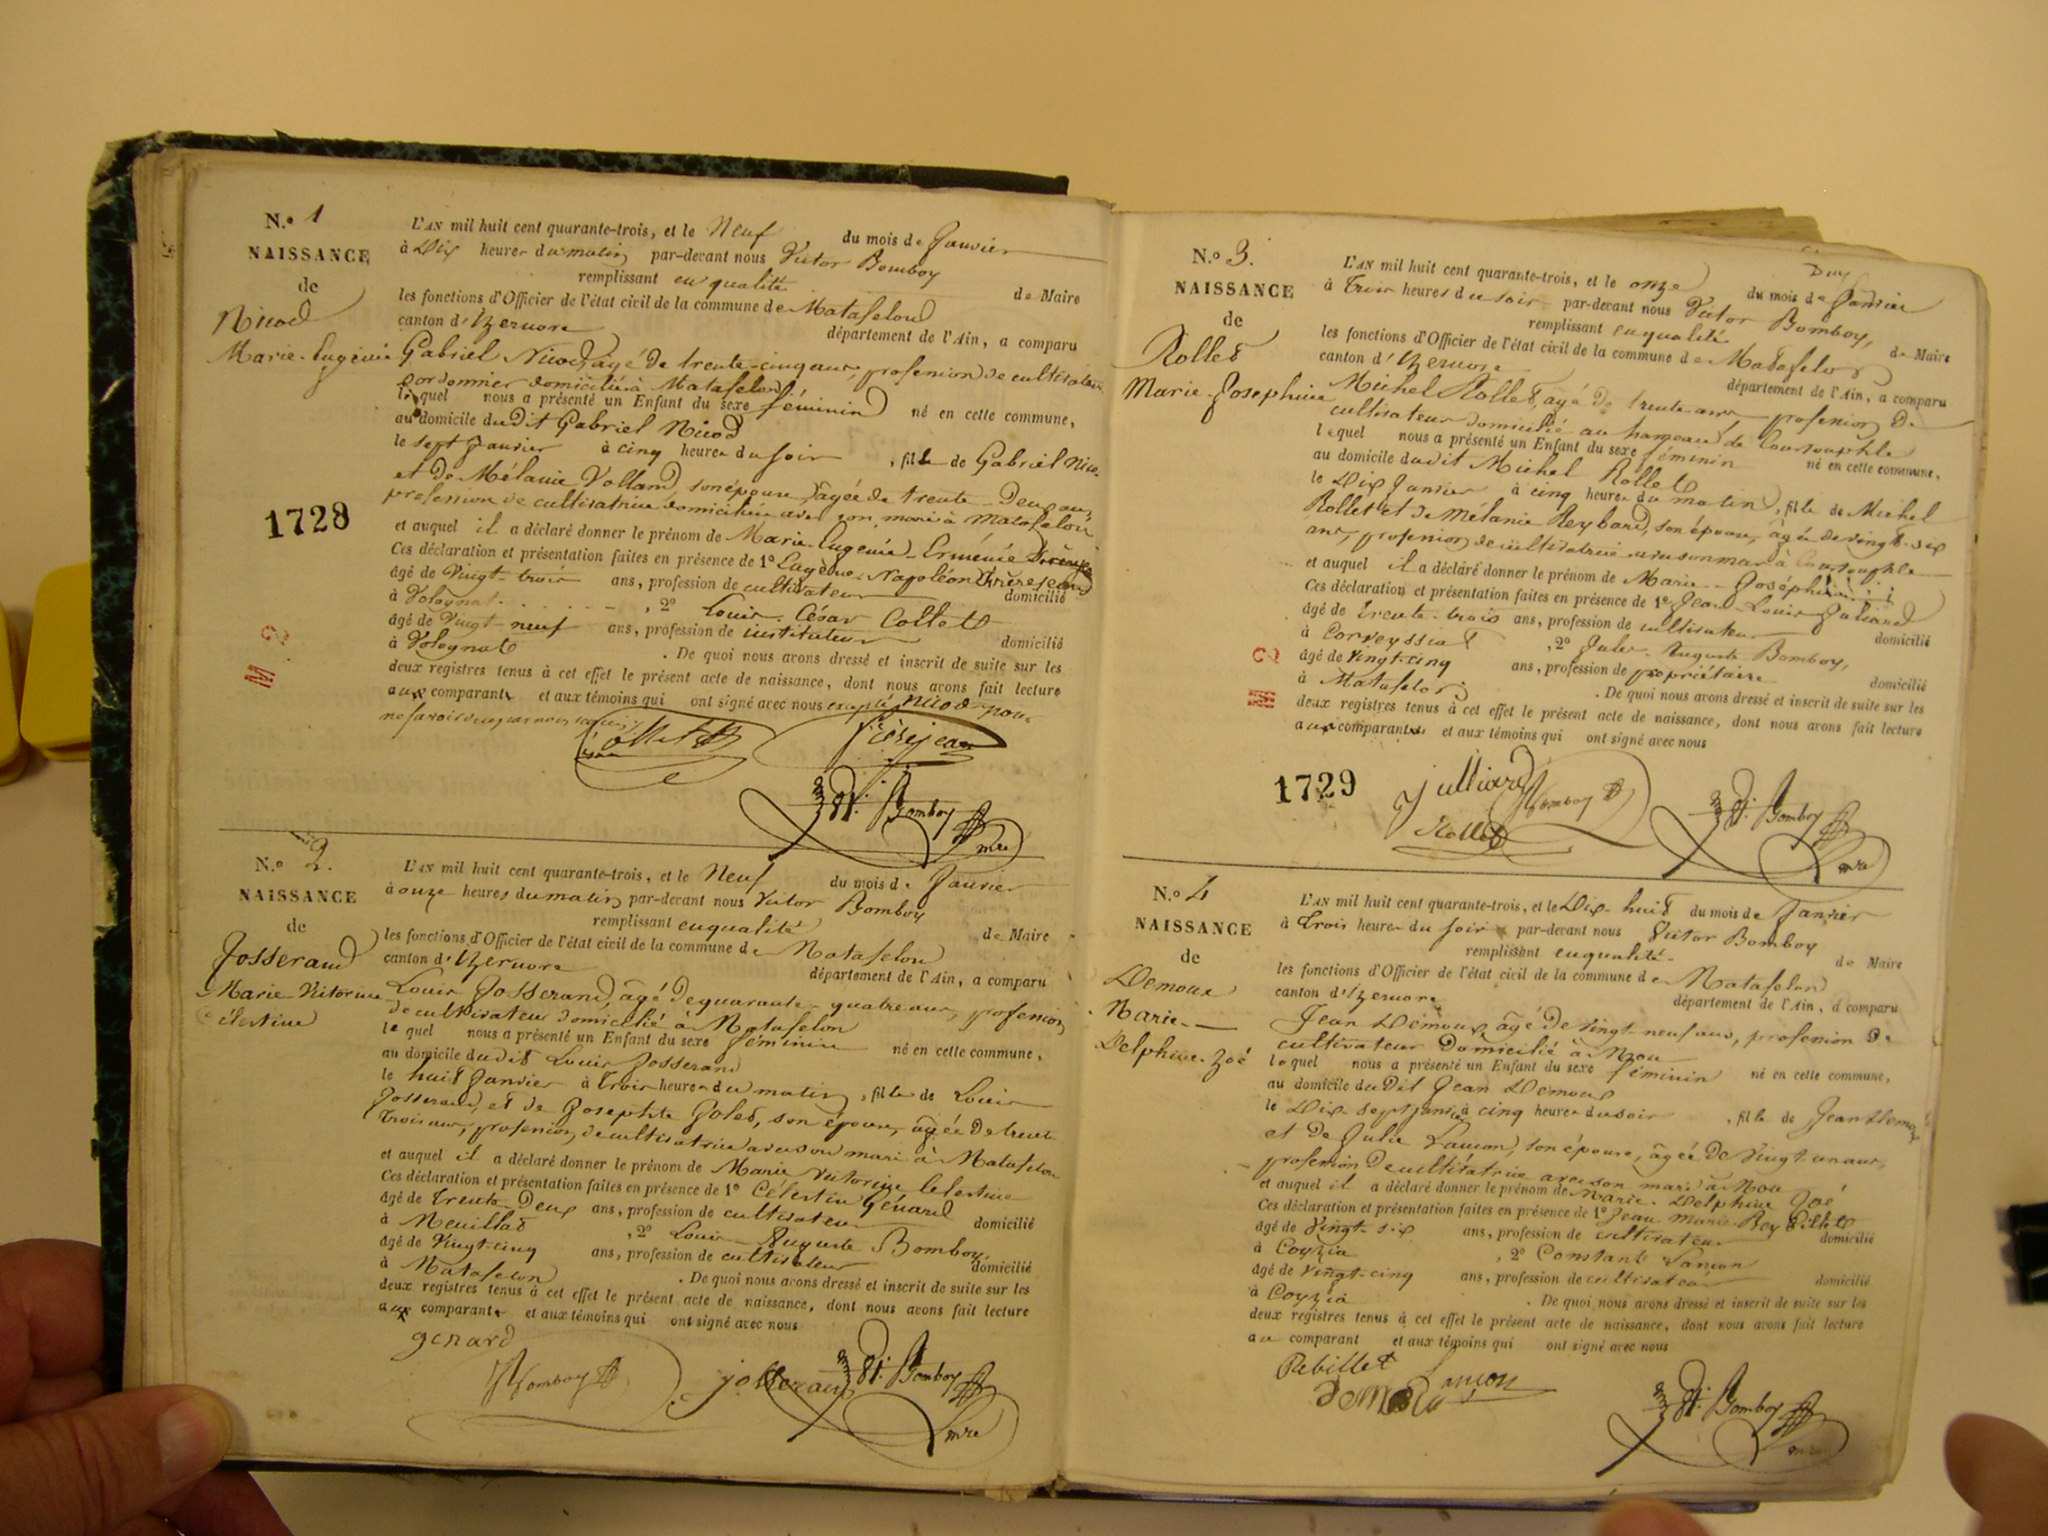 N.o 1
NAISSANCE
de
Nicod
Marie-Eugénie
L'AN mil huit cent quarante-trois, et le Neuf du mois de Janvier
à Dix heures du matin par-devant nous Victor Bomboy
remplissant en qualité de Maire
les fonctions d'Officier de l'état civil de la commune de Matafelon
canton d'Izernore département de l'Ain, a comparu
Gabriel Nicod, agé de trente-cinq ans, profession de cultivateur
cordonnier domicilié à Matafelon
lequel nous a présenté un Enfant du sexe féminin né en cette commune,
au domicile du dit Gabriel Nicod
le sept Janvier à cinq heures du soir, fille de Gabriel Nico-
et de Mélanie Volland, son épouse, âgée de trente-deux ans,
profession de cultivatrice domiciliée avec son mari à Matafelon
et auquel il a déclaré donner le prénom de Marie-Eugénie-Erménie
Ces déclaration et présentation faites en présence de 1o Eugène-Napoléon Frèrejean
âgé de Vingt-trois ans, profession de cultivateur domicilié
à Volognat, 2o Louis-César Collet
âgé de Vingt-neuf ans, profession de instituteur domicilié
à Volognat. De quoi nous avons dressé et inscrit de suite sur les
deux registres tenus à cet effet le présent acte de naissance, dont nous avons fait lecture
aux comparants et aux témoins qui ont signé avec nous excepté Nicod pour
ne savoir
Collet
frèrejean
Vr. Bomboy
mre
1728
M. 2
N.o 2.
NAISSANCE
de
Josserand
Marie-Victorine
Célestine
L'AN mil huit cent quarante-trois, et le Neuf du mois de Janvier
à onze heures du matin par-devant nous Victor Bomboy
remplissant en qualité de Maire
les fonctions d'Officier de l'état civil de la commune de Matafelon
canton d'Izernore département de l'Ain, a comparu
Louis Josserand, âgé de quarante-quatre ans, profession
de cultivateur domicilié à Matafelon
lequel nous a présenté un Enfant du sexe féminin né en cette commune,
au domicile du dit Louis Josserand
le huit Janvier à trois heures du matin, fille de Louis
Josserand, et de Josephte Golet, son épouse, âgée de trente
trois ans, profession de cultivatrice avec son mari à Matafelon
et auquel il a déclaré donner le prénom de Marie Victorine Celestine
Ces déclaration et présentation faites en présence de 1o Célestin Génard
âgé de Trente-Deux ans, profession de cultivateur domicilié
à Meuillat, 2o Louis-Auguste Bomboy,
âgé de Vingt-cinq ans, profession de cultivateur domicilié
à Matafelon. De quoi nous avons dressé et inscrit de suite sur les
deux registres tenus à cet effet le présent acte de naissance, dont nous avons fait lecture
aux comparants et aux témoins qui ont signé avec nous
genard
Bomboy
josserand
Vr. Bomboy
mre
N.o 3.
NAISSANCE
de
Rollet
Marie-Josephine
Duy
L'AN mil huit cent quarante-trois, et le onze du mois de Janvier
à Trois heures du soir par-devant nous Victor Bomboy,
remplissant en qualité de Maire
les fonctions d'Officier de l'état civil de la commune de Matafelon
canton d'Izernore département de l'Ain, a comparu
Michel Rollet, âgé de trente ans profession de
cultivateur domicilié au hameau de Courtouphle
lequel nous a présenté un Enfant du sexe féminin né en cette commune,
au domicile du dit Michel Rollet
le Dix Janvier à cinq heures du matin, fille de Michel
Rollet et de Mélanie Reybard, son épouse, âgée de vingt-six
ans, profession de cultivatrice avec son mari à Courtouphle
et auquel il a déclaré donner le prénom de Marie-Joséphine
Ces déclaration et présentation faites en présence de 1o Jean-Louis Juliard
âgé de Trente-trois ans, profession de cultivateur domicilié
à Corveyssiat, 2o Jules-Auguste Bomboy,
âgé de Vingt-cinq ans, profession de propriétaire domicilié
à Matafelon. De quoi nous avons dressé et inscrit de suite sur les
deux registres tenus à cet effet le présent acte de naissance, dont nous avons fait lecture
aux comparants et aux témoins qui ont signé avec nous
1729
Julliard
Bomboy
Rollet
Vr. Bomboy
mre
N.o 4
NAISSANCE
de
Demoux
Marie-
Delphine-Zoé
L'AN mil huit cent quarante-trois, et le Dix-huit du mois de Janvier
à Trois heures du soir par-devant nous Victor Bomboy
remplissant en qualité de Maire
les fonctions d'Officier de l'état civil de la commune de Matafelon
canton d'Izernore département de l'Ain, a comparu
Jean Demoux, âgé de vingt-neuf ans, profession de
cultivateur domicilié à Mou
lequel nous a présenté un Enfant du sexe féminin né en cette commune,
au domicile du dit Jean Demoux
le Dix-sept Janvier à cinq heures du soir, fille de Jean Demoux
et de Julie Lançon, son épouse, âgée de Vingt-un ans,
profession de cultivatrice avec son mari à Mou
et auquel il a déclaré donner le prénom de Marie-Delphine Zoé
Ces déclaration et présentation faites en présence de 1o Jean-Marie-Rey
âgé de Vingt-six ans, profession de cultivateur domicilié
à Coyzia, 2o Constant Lançon
âgé de Vingt-cinq ans, profession de cultivateur domicilié
à Coyzia. De quoi nous avons dressé et inscrit de suite sur les
deux registres tenus à cet effet le présent acte de naissance, dont nous avons fait lecture
au comparant et aux témoins qui ont signé avec nous
Rebillet
Lançon
Vr. Bomboy
mre